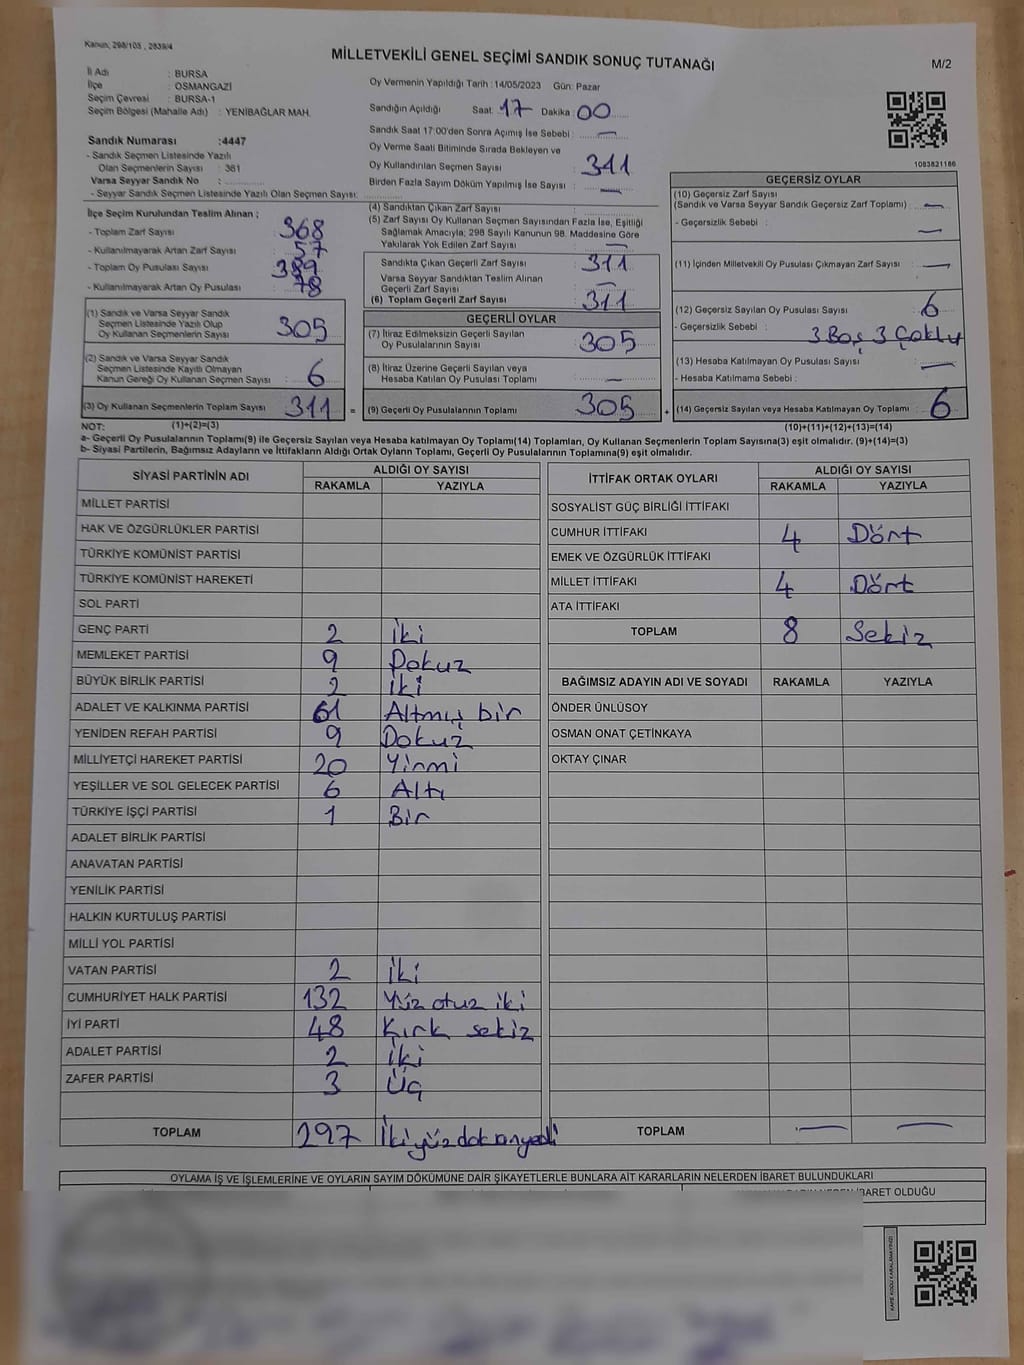 Kanun; 298/105 , 2839/4
MİLLETVEKİLİ GENEL SEÇİMİ SANDIK SONUÇ TUTANAĞI
M/2
İl Adı : BURSA
İlçe : OSMANGAZİ
Seçim Çevresi : BURSA-1
Seçim Bölgesi (Mahalle Adı) : YENİBAĞLAR MAH.
Sandık Numarası :4447
- Sandık Seçmen Listesinde Yazılı
Olan Seçmenlerin Sayısı : 361
Varsa Seyyar Sandık No :
- Seyyar Sandık Seçmen Listesinde Yazılı Olan Seçmen Sayısı:
İlçe Seçim Kurulundan Teslim Alınan ;
- Toplam Zarf Sayısı : 368
- Kullanılmayarak Artan Zarf Sayısı : 57
- Toplam Oy Pusulası Sayısı : 389
- Kullanılmayarak Artan Oy Pusulası : 78
(1) Sandık ve Varsa Seyyar Sandık
Seçmen Listesinde Yazılı Olup
Oy Kullanan Seçmenlerin Sayısı : 305
(2) Sandık ve Varsa Seyyar Sandık
Seçmen Listesinde Kayıtlı Olmayan
Kanun Gereği Oy Kullanan Seçmen Sayısı : 6
(3) Oy Kullanan Seçmenlerin Toplam Sayısı : 311 =
Oy Vermenin Yapıldığı Tarih : 14/05/2023 Gün: Pazar
Sandığın Açıldığı Saat: 17 Dakika : 00
Sandık Saat 17:00'den Sonra Açılmış İse Sebebi : —
Oy Verme Saati Bitiminde Sırada Bekleyen ve
Oy Kullandırılan Seçmen Sayısı : 311
Birden Fazla Sayım Döküm Yapılmış İse Sayısı : —
(4) Sandıktan Çıkan Zarf Sayısı :
(5) Zarf Sayısı Oy Kullanan Seçmen Sayısından Fazla İse, Eşitliği
Sağlamak Amacıyla; 298 Sayılı Kanunun 98. Maddesine Göre
Yakılarak Yok Edilen Zarf Sayısı : —
Sandıkta Çıkan Geçerli Zarf Sayısı : 311
Varsa Seyyar Sandıktan Teslim Alınan
Geçerli Zarf Sayısı : —
(6) Toplam Geçerli Zarf Sayısı : 311
GEÇERLİ OYLAR
(7) İtiraz Edilmeksizin Geçerli Sayılan
Oy Pusulalarının Sayısı : 305
(8) İtiraz Üzerine Geçerli Sayılan veya
Hesaba Katılan Oy Pusulası Toplamı : —
(9) Geçerli Oy Pusulalarının Toplamı : 305 +
1083821186
GEÇERSİZ OYLAR
(10) Geçersiz Zarf Sayısı
(Sandık ve Varsa Seyyar Sandık Geçersiz Zarf Toplamı) : —
- Geçersizlik Sebebi : —
(11) İçinden Milletvekili Oy Pusulası Çıkmayan Zarf Sayısı : —
(12) Geçersiz Sayılan Oy Pusulası Sayısı : 6
- Geçersizlik Sebebi : 3 Boş 3 Çoklu
(13) Hesaba Katılmayan Oy Pusulası Sayısı : —
- Hesaba Katılmama Sebebi :
(14) Geçersiz Sayılan veya Hesaba Katılmayan Oy Toplamı : 6
NOT: (1)+(2)=(3) (10)+(11)+(12)+(13)=(14)
a- Geçerli Oy Pusulalarının Toplamı(9) ile Geçersiz Sayılan veya Hesaba katılmayan Oy Toplamı(14) Toplamları, Oy Kullanan Seçmenlerin Toplam Sayısına(3) eşit olmalıdır. (9)+(14)=(3)
b- Siyasi Partilerin, Bağımsız Adayların ve İttifakların Aldığı Ortak Oyların Toplamı, Geçerli Oy Pusulalarının Toplamına(9) eşit olmalıdır.
SİYASİ PARTİNİN ADI ALDIĞI OY SAYISI
RAKAMLA YAZIYLA
MİLLET PARTİSİ
HAK VE ÖZGÜRLÜKLER PARTİSİ
TÜRKİYE KOMÜNİST PARTİSİ
TÜRKİYE KOMÜNİST HAREKETİ
SOL PARTİ
GENÇ PARTİ 2 İki
MEMLEKET PARTİSİ 9 Dokuz
BÜYÜK BİRLİK PARTİSİ 2 İki
ADALET VE KALKINMA PARTİSİ 61 Altmış bir
YENİDEN REFAH PARTİSİ 9 Dokuz
MİLLİYETÇİ HAREKET PARTİSİ 20 Yirmi
YEŞİLLER VE SOL GELECEK PARTİSİ 6 Altı
TÜRKİYE İŞÇİ PARTİSİ 1 Bir
ADALET BİRLİK PARTİSİ
ANAVATAN PARTİSİ
YENİLİK PARTİSİ
HALKIN KURTULUŞ PARTİSİ
MİLLİ YOL PARTİSİ
VATAN PARTİSİ 2 İki
CUMHURİYET HALK PARTİSİ 132 Yüz otuz iki
İYİ PARTİ 48 Kırk sekiz
ADALET PARTİSİ 2 İki
ZAFER PARTİSİ 3 Üç
TOPLAM 297 İkiyüzdoksanyedi
İTTİFAK ORTAK OYLARI ALDIĞI OY SAYISI
RAKAMLA YAZIYLA
SOSYALİST GÜÇ BİRLİĞİ İTTİFAKI
CUMHUR İTTİFAKI 4 Dört
EMEK VE ÖZGÜRLÜK İTTİFAKI
MİLLET İTTİFAKI 4 Dört
ATA İTTİFAKI
TOPLAM 8 Sekiz
BAĞIMSIZ ADAYIN ADI VE SOYADI RAKAMLA YAZIYLA
ÖNDER ÜNLÜSOY
OSMAN ONAT ÇETİNKAYA
OKTAY ÇINAR
TOPLAM — —
OYLAMA İŞ VE İŞLEMLERİNE VE OYLARIN SAYIM DÖKÜMÜNE DAİR ŞİKAYETLERLE BUNLARA AİT KARARLARIN NELERDEN İBARET BULUNDUKLARI
İBARET OLDUĞU
KARE KODU KARALAMAYINIZ!